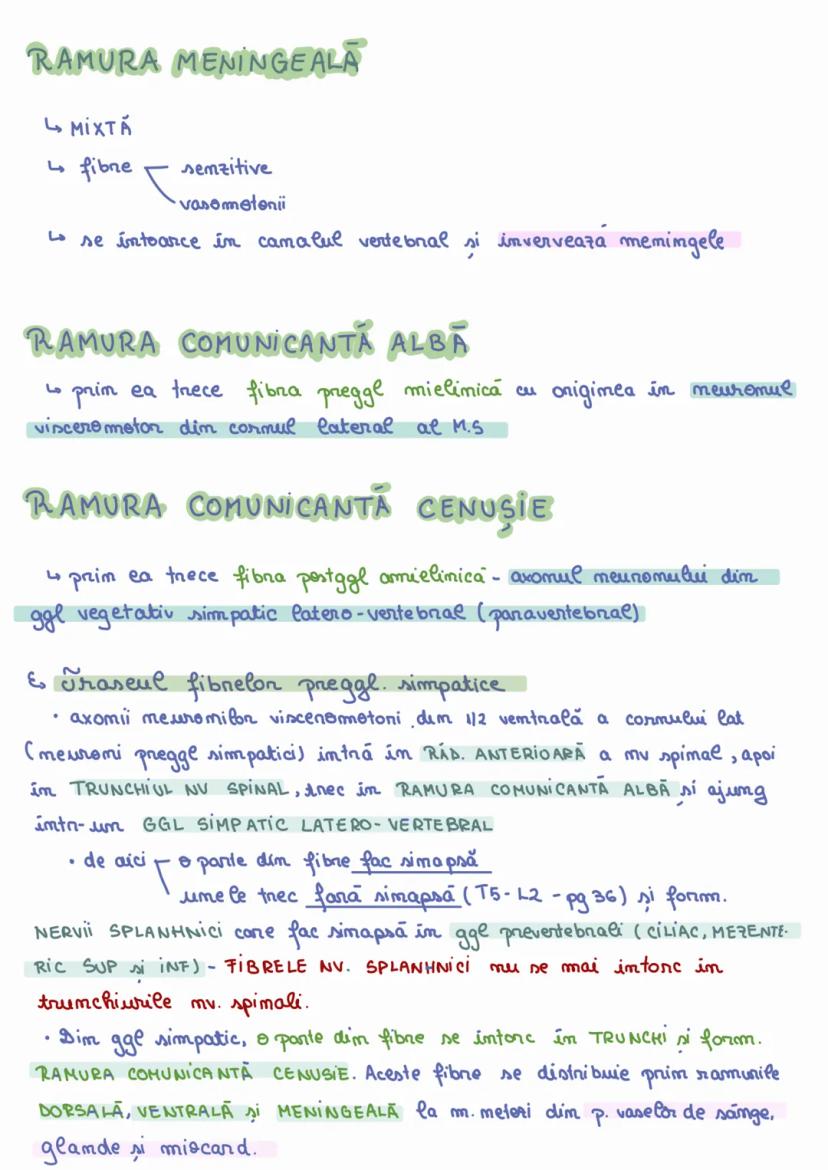 RAMURA MENINGEALĂ
↳ MIXTĂ
↳ fibre senzitive
vasomotorii
↳ se întoarce în canalul vertebral și invervează meningele
RAMURA COMUNICANTĂ ALBĂ
↳ prin ea trece fibra preggl mielinică cu originea în neuronul
visceromotor din cornul lateral al M.S
RAMURA COMUNICANTĂ CENUȘIE
↳ prin ea trece fibra postggl amielinică - axonul neuronului din
ggl vegetativ simpatic latero-vertebral (paravertebral)
↳ Traseul fibrelor preggl. simpatice
• axonii neuronilor visceromotori din 1/2 ventrală a cornului lat
(neuroni preggl simpatici) intră în RĂD. ANTERIOARĂ a nv spinal, apoi
în TRUNCHIUL NV SPINAL, trec în RAMURA COMUNICANTĂ ALBĂ și ajung
într-un GGL SIMPATIC LATERO-VERTEBRAL
• de aici o parte din fibre fac sinapsă
unele trec fără sinapsă (T5-L2 - pg 36) și form.
NERVII SPLANHNICI care fac sinapsă în ggl prevertebrali (CILIAC, MEZENTE-
RIC SUP și INF) - FIBRELE NV. SPLANHNICI nu se mai intorc in
trunchiurile nv. spinali.
• Din ggl simpatic, o parte din fibre se întorc în TRUNCHI și form.
RAMURA COMUNICANTĂ CENUSIE. Aceste fibre se distribuie prin ramurile
DORSALĂ, VENTRALĂ și MENINGEALĂ la m. netezi din p. vaselor de sânge,
glande și miocard.